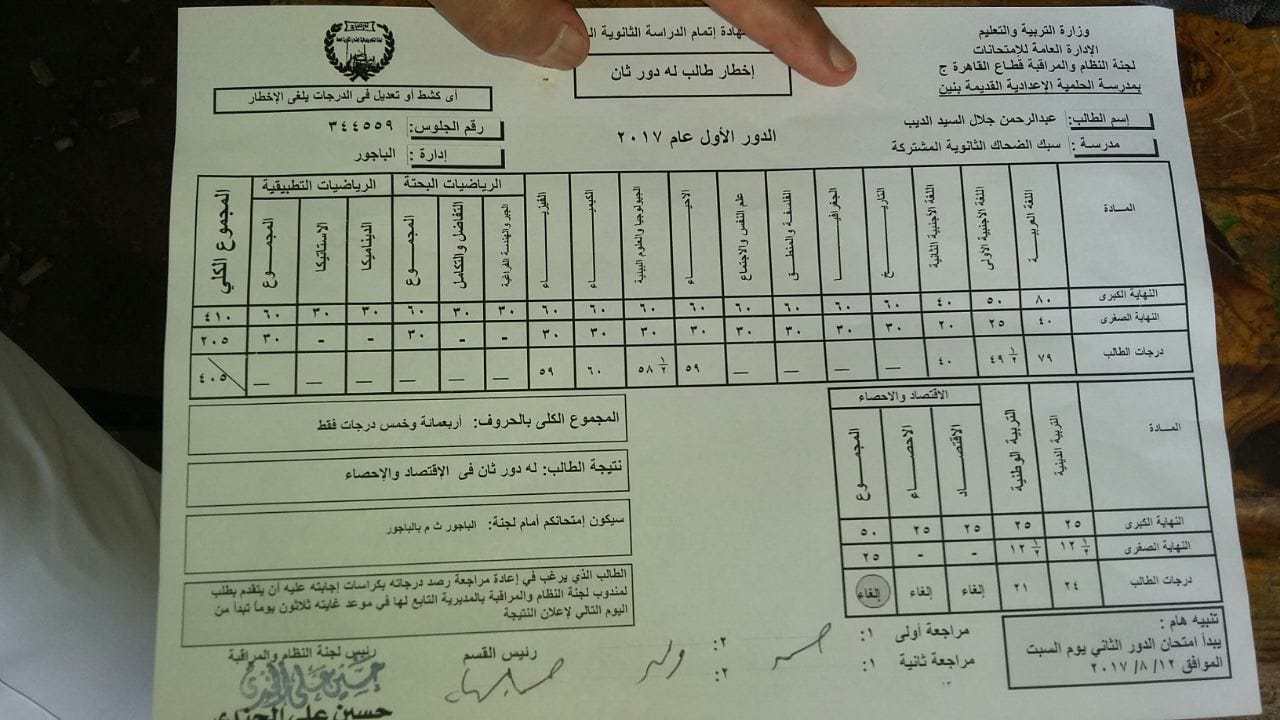 وزارة التربية والتعليم
الإدارة العامة للإمتحانات
لجنة النظام والمراقبة قطاع القاهرة ج
بمدرسة الحلمية الإعدادية القديمة بنين
إتمام الدراسة الثانوية
إخطار طالب له دور ثان
أى كشط أو تعديل فى الدرجات يلغى الإخطار
إسم الطالب: عبدالرحمن جلال السيد الديب
رقم الجلوس: ٣٤٤٥٥٩
الدور الأول عام ٢٠١٧
مدرسة: سبك الضحاك الثانوية المشتركة
إدارة: الباجور
الرياضيات البحتة الرياضيات التطبيقية
المادة اللغة العربية اللغة الأجنبية الأولى اللغة الأجنبية الثانية التاريخ الجغرافيا الفلسفة والمنطق علم النفس والاجتماع الاحياء الجيولوجيا والعلوم البيئية الكيمياء الفيزياء الجبر والهندسة الفراغية التفاضل والتكامل المجموع الديناميكا الاستاتيكا المجموع المجموع الكلي
النهاية الكبرى ٨٠ ٥٠ ٤٠ ٦٠ ٦٠ ٦٠ ٦٠ ٦٠ ٦٠ ٦٠ ٦٠ ٣٠ ٣٠ ٦٠ ٣٠ ٣٠ ٦٠ ٤١٠
النهاية الصغرى ٤٠ ٢٥ ٢٠ ٣٠ ٣٠ ٣٠ ٣٠ ٣٠ ٣٠ ٣٠ ٣٠ - - ٣٠ - - ٣٠ ٢٠٥
درجات الطالب ٧٩ ٤٩ ½ ٤٠ — — — — ٥٩ ٥٨ ½ ٦٠ ٥٩ — — — — — — ٤٠٥
الاقتصاد والاحصاء
المادة التربية الدينية التربية الوطنية الاقتصاد الاحصاء المجموع
النهاية الكبرى ٢٥ ٢٥ ٢٥ ٢٥ ٥٠
النهاية الصغرى ١٢ ½ ١٢ ½ - - ٢٥
درجات الطالب ٢٤ ٢١ إلغاء إلغاء إلغاء
المجموع الكلى بالحروف: أربعمائة وخمس درجات فقط
نتيجة الطالب: له دور ثان فى الإقتصاد والإحصاء
سيكون إمتحانكم أمام لجنة: الباجور ث م بالباجور
الطالب الذي يرغب في إعادة مراجعة رصد درجاته بكراسات إجابته عليه أن يتقدم بطلب
لمندوب لجنة النظام والمراقبة بالمديرية التابع لها في موعد غايته ثلاثون يوماً تبدأ من
اليوم التالي لإعلان النتيجة
تنبيه هام :
يبدأ امتحان الدور الثاني يوم السبت
الموافق ١٢/ ٨/ ٢٠١٧
مراجعة أولى ١: ٢:
مراجعة ثانية ١: ٢:
رئيس القسم
رئيس لجنة النظام والمراقبة